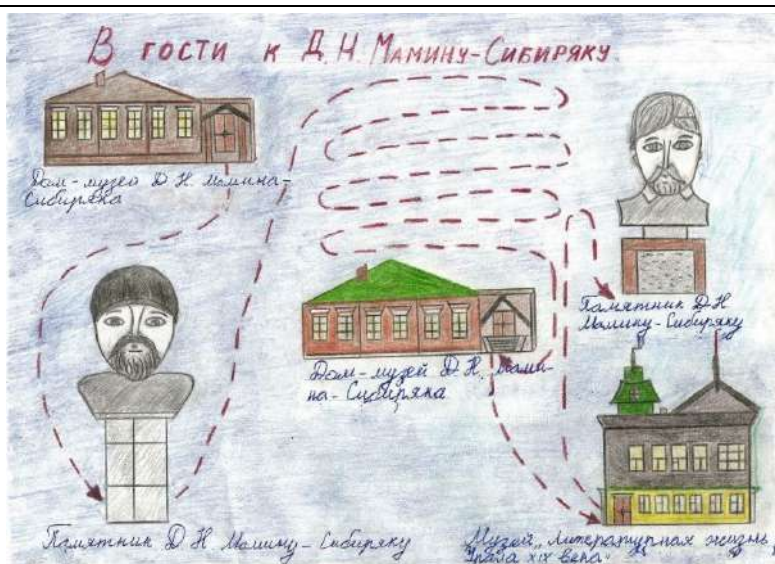 В гости к Д.Н. Мамину-Сибиряку
Дом-музей Д.Н. Мамина-
Сибиряка
Памятник Д.Н.
Мамину-Сибиряку
Дом-музей Д.Н. Мами-
на-Сибиряка
Памятник Д.Н. Мамину-Сибиряку
Музей „Литературная жизнь
Урала XIX века"